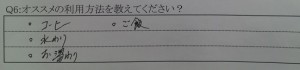 Q6:オススメの利用方法を教えてください?
・コーヒー ・ご飯
・水わり
・お湯わり